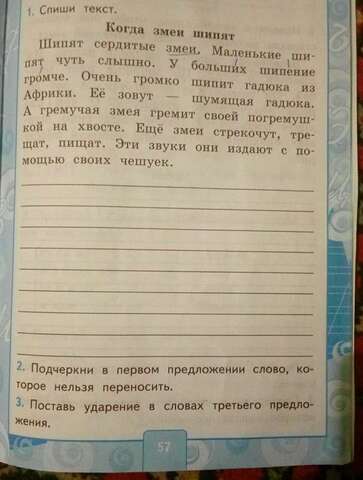 1. Спиши текст.
Когда змеи шипят
Шипят сердитые змеи. Маленькие ши-
пят чуть слышно. У больших шипение
громче. Очень громко шипит гадюка из
Африки. Её зовут — шумящая гадюка.
А гремучая змея гремит своей погремуш-
кой на хвосте. Ещё змеи стрекочут, тре-
щат, пищат. Эти звуки они издают с по-
мощью своих чешуек.
2. Подчеркни в первом предложении слово, ко-
торое нельзя переносить.
3. Поставь ударение в словах третьего предло-
жения.
57